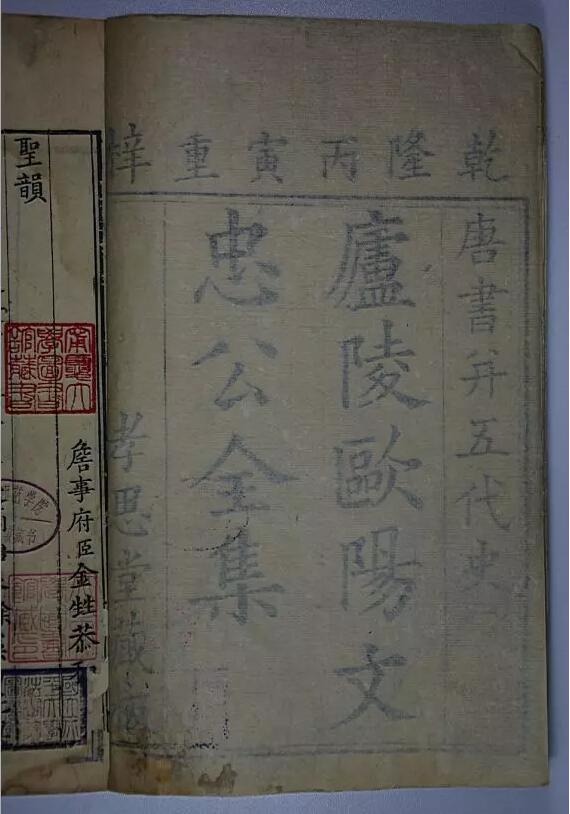 乾隆丙寅重梓
唐書并五代史
廬陵歐陽文
忠公全集
孝思堂藏
聖韻
詹事府臣金甡恭